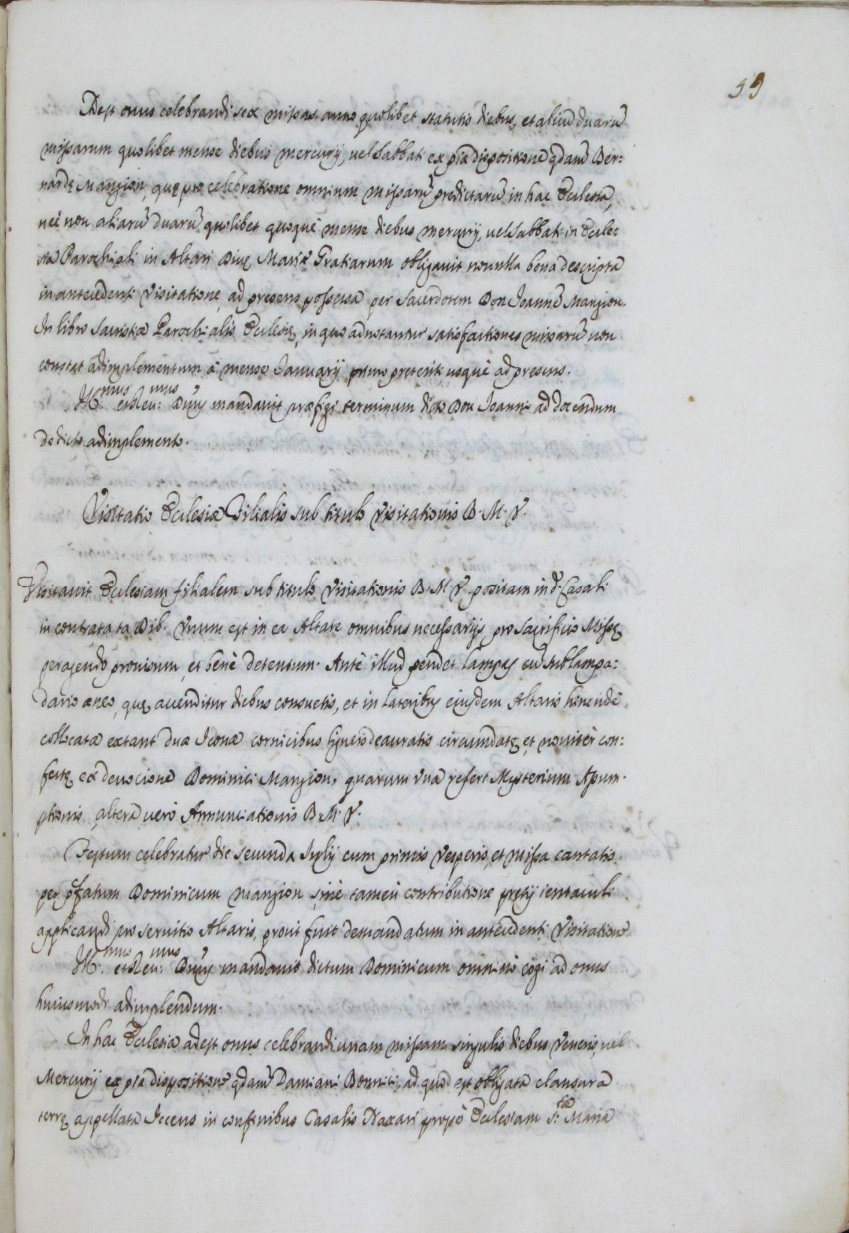 59
Adest onus celebrandi sex missas anno quolibet statutis diebus, et aliud duarū
missarum quolibet mense diebus mercurij, vel sabbati ex pia dispositione qdam̄ Ber:
nardę Mangion, quę pro celebratione omnium missarū predictarū in hac Ecclesia,
nec non aliarū duarū quolibet quoque mense diebus mercurij, vel sabbati in Eccle
sia Parochiali in Altari Divę Mariæ Gratiarum obligavit nonnulla bona descripta
in antecedenti Visitatione, ad presens possessa per Sacerdotem Don Joannē Mangion.
In libro Sacristiæ Parochialis Ecclesię, in quo adnotantur satisfactiones missarū non
constat adimplementum à mense Januarij primo preterit: usquè ad presens.
Ill.mus et Rev:mus Dn̄us mandavit præfigi terminum dicto Don Joanni ad docendum
de dicto adimplemento.
Visitatio Ecclesiæ Filialis sub titulo Visitationis B. M. V.
Visitavit Ecclesiam filialem sub titulo Visitationis B. M. V. positam in d. Casali
in contrata ta Bib. Unum est in ea Altare omnibus necessarijs pro Sacrificio Missę
peragendo provisum, et benè detentum. Antè illud pendet lampas cū sublampa:
dario æneo, quę accenditur diebus consuetis, et in lateribus eiusdem Altaris
collocatæ extant duæ Iconæ cornicibus ligneis deauratis circumdatę et novitèr con:
fectę ex devotione Dominici Mangion, quarum una refert Mysterium Assum-
ptionis, altera verò Annunciationis B. M. V.
Festum celebratur die secunda Julij cum primis Vesperis, et missa cantatis
per pfatum Dominicum Mangion sine tamen contributione pretij ientaculi
applicandi pro servitio Altaris, prout fuit demandatum in antecedenti Visitatione
Ill.mus et Rev:mus Dn̄us mandavit dictum Dominicum omninò cogi ad onus
huiusmodi adimplendum.
In hac Ecclesia adest onus celebrandi unam missam singulis diebus Veneris, vel
Mercurij ex pia dispositione qdam̄ Damiani Bonnici, ad quod est obligata clausura
terrę appellata Icceus in confinibus Casalis Naxari propè Ecclesiam S:tæ Mariæ